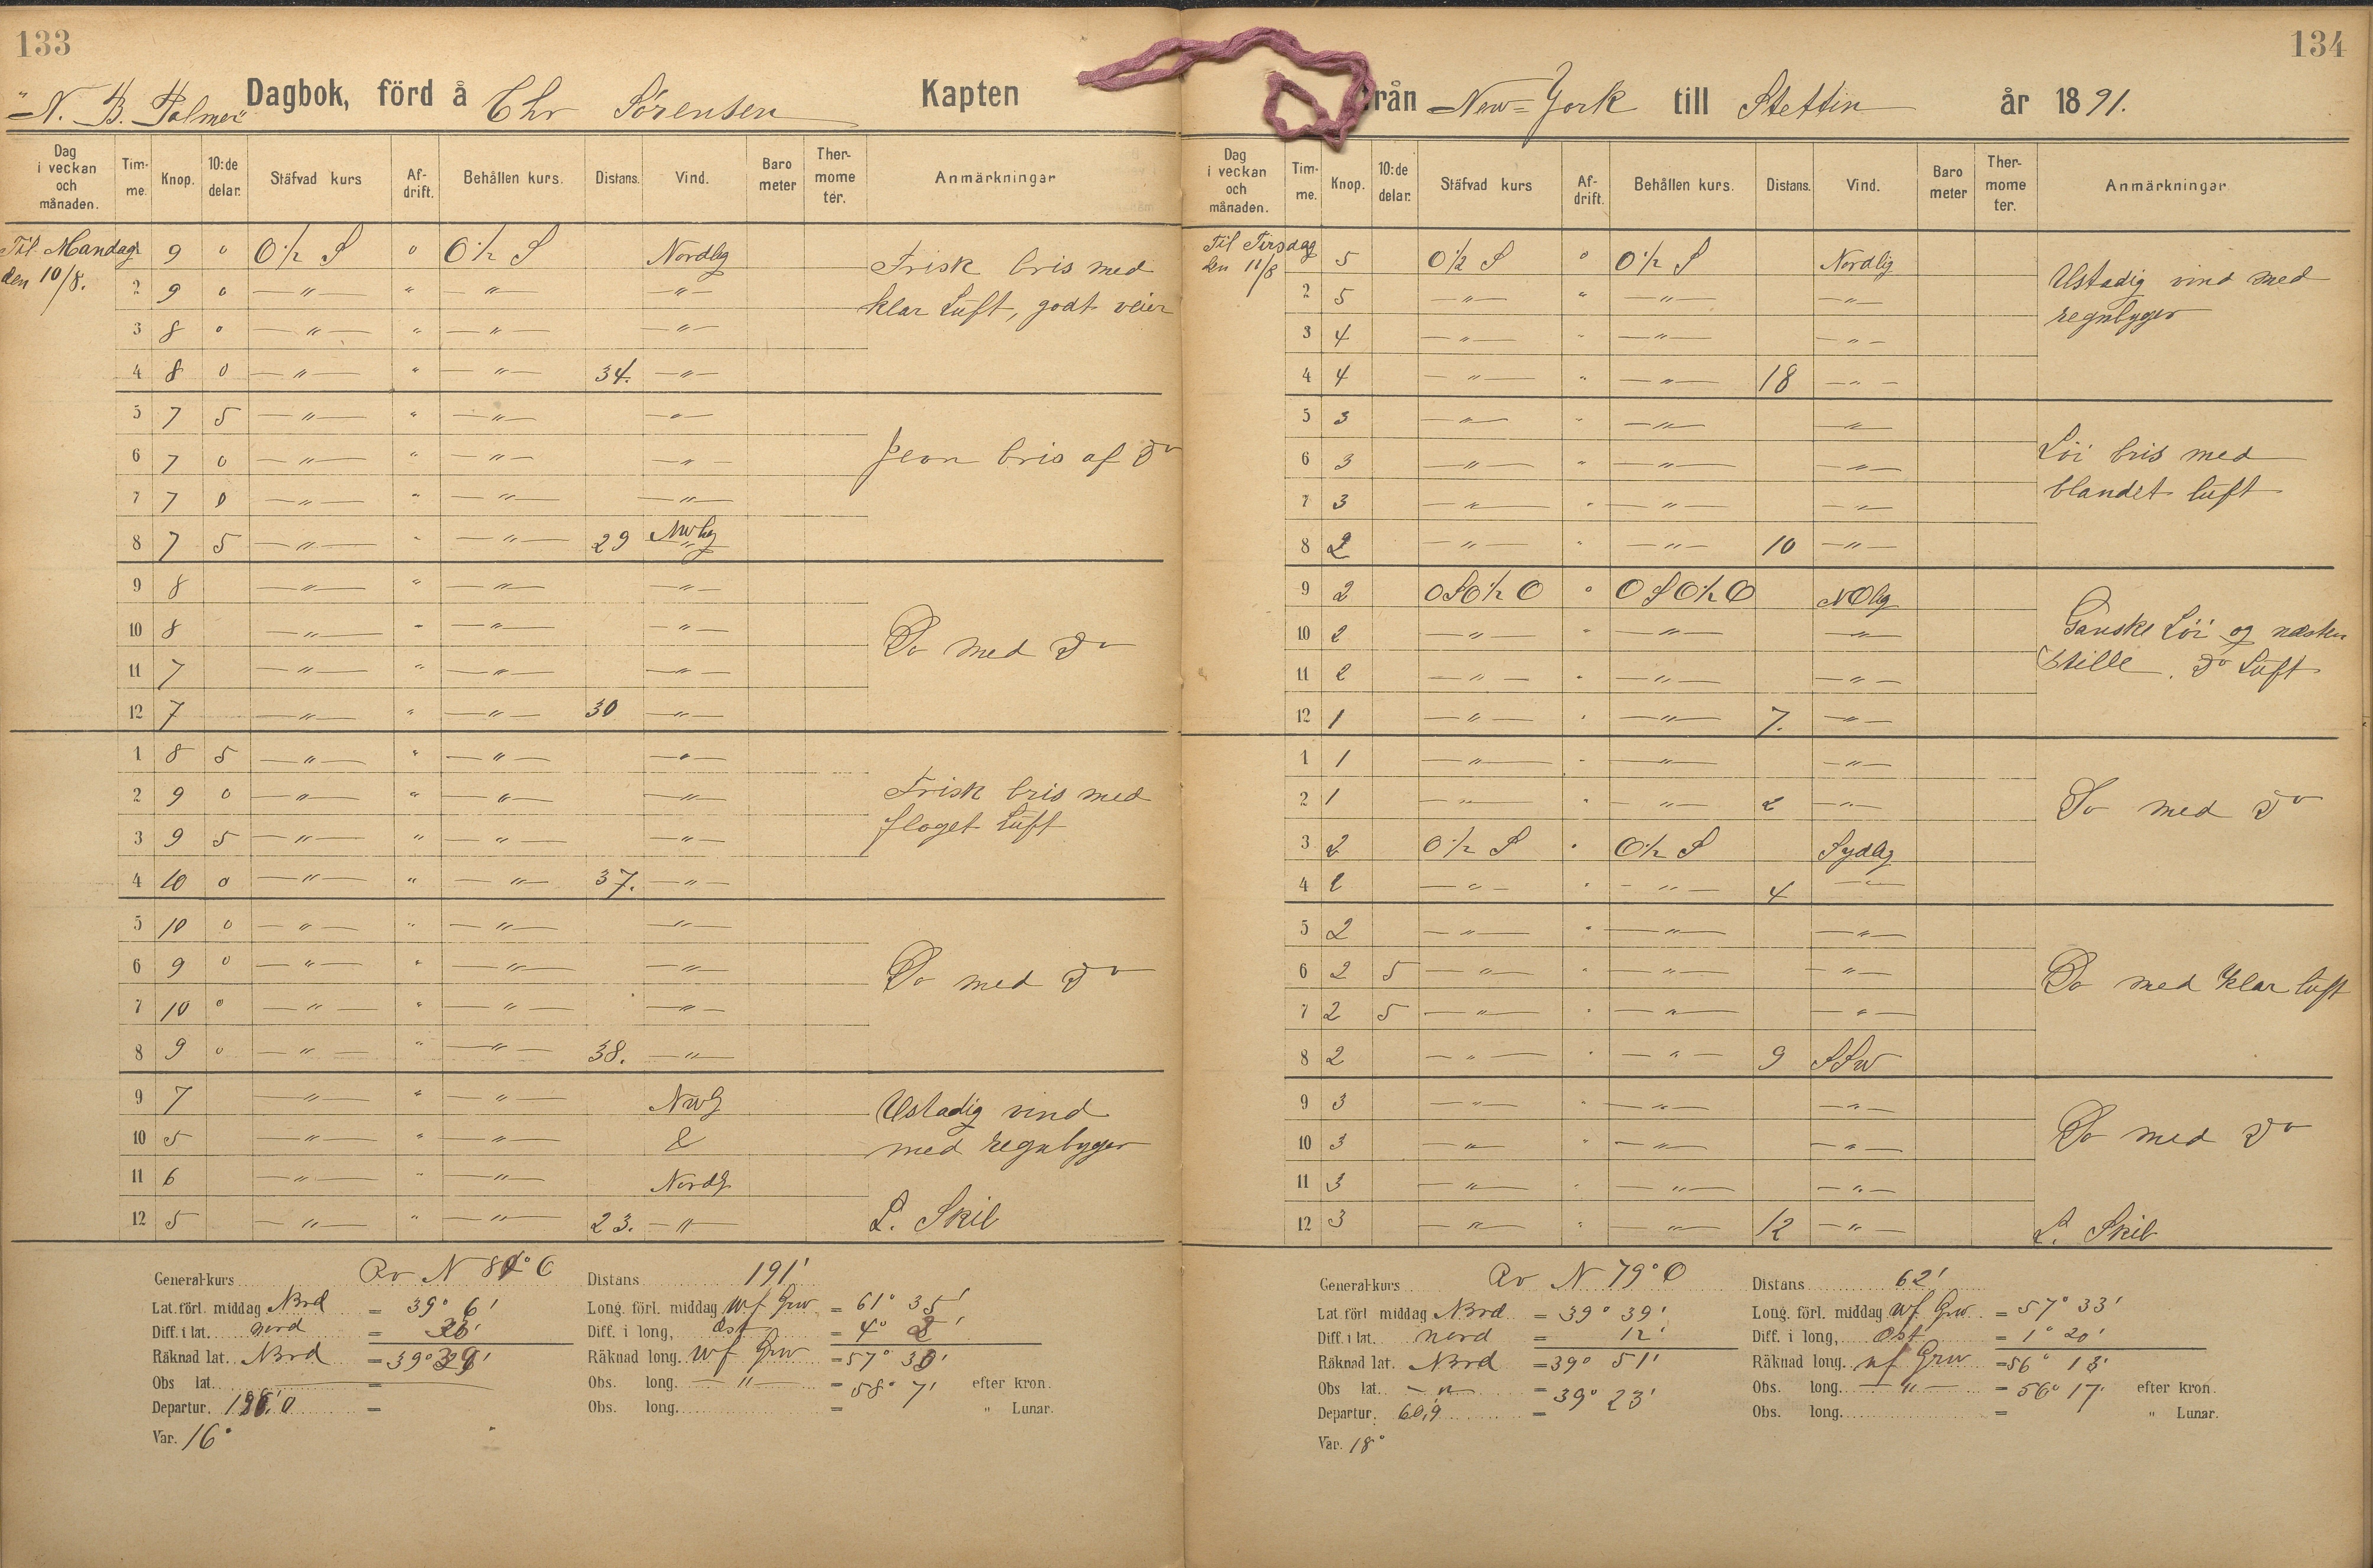 133
"N. B. Palmer" Dagbok, förd å Chr Sörensen Kapten
Dag i veckan och månaden. Tim-me. Knop. 10:de delar. Stäfvad kurs Af-drift. Behållen kurs. Distans. Vind. Baro meter Ther-mome ter. Anmärkningar
Til Mandag 9 0 O½ S " O½ S Nordlig Frisk bris med
den 10/8. 2 9 0 — " — " — " — — " — klar Luft, godt veier
3 8 0 — " — " — " — — " —
4 8 0 — " — " — " — 34. — " —
5 7 5 — " — " — " — — " —
6 7 0 — " — " — " — — " — Jevn bris af Do
7 7 0 — " — " — " — — " —
8 7 5 — " — " — " — 29 NWlig
9 8 — " — " — " — — " —
10 8 — " — " — " — — " — Do med Do
11 7 — " — " — " — — " —
12 7 — " — " — " — 30 — " —
1 8 5 — " — " — " — — " —
2 9 0 — " — " — " — — " — Frisk bris med
3 9 5 — " — " — " — — " — floget Luft
4 10 0 — " — " — " — 37. — " —
5 10 0 — " — " — " — — " —
6 9 0 — " — " — " — — " — Do med Do
7 10 0 — " — " — " — — " —
8 9 0 — " — " — " — 38. — " —
9 7 — " — " — " — NWlg Ustadig vind
10 5 — " — " — " — & med regnbyger
11 6 — " — " — " — Nordlg
12 5 — " — " — " — 23. — " — L. Skib
General-kurs Rv N 8 ° O Distans 191'
Lat. förl. middag Nord = 39° 6' Long. förl. middag W f Grw = 61° 35'
Diff. i lat. nord = Diff. i long, Ost = 4°
Räknad lat. Nord = 39° Räknad long. W f Grw = 57°
Obs lat. — = Obs. long. — " — = 58° 7' efter kron.
Departur. = Obs. long. = " Lunar.
Var. 16°
134
från New-York till Stettin år 1891.
Dag i veckan och månaden. Tim-me. Knop. 10:de delar. Stäfvad kurs Af-drift. Behållen kurs. Distans. Vind. Baro meter Ther-mome ter. Anmärkningar
Til Tirsdag 5 O½ S " O½ S Nordlig Ustadig vind med
den 11/8 2 5 — " — " — " — — " — regnbyger
3 4 — " — " — " — — " —
4 4 — " — " — " — 18 — " —
5 3 — " — " — " — — " —
6 3 — " — " — " — — " — Löi bris med
7 3 — " — " — " — — " — blandet luft
8 2 — " — " — " — 10 — " —
9 2 OSO½O " OSO½O NOlig
10 2 — " — " — " — — " — Ganske Löi og næsten
11 2 — " — " — " — — " — Stille. Do Luft
12 1 — " — " — " — 7. — " —
1 1 — " — " — " — — " —
2 1 — " — " — " — 2 — " — Do med Do
3 2 O½ S " O½ S Sydlig
4 2 — " — " — " — 4 — " —
5 2 — " — " — " — — " —
6 2 5 — " — " — " — — " — Do med klar luft
7 2 5 — " — " — " — — " —
8 2 — " — " — " — 9 SSW
9 3 — " — " — " — — " —
10 3 — " — " — " — — " — Do med Do
11 3 — " — " — " — — " —
12 3 — " — " — " — 12 — " — L. Skib
General-kurs Rv N 79° O Distans 62'
Lat förl middag Nord = 39° 39' Long. förl. middag W f Grw = 57° 33'
Diff. i lat. nord = 12' Diff. i long, Ost = 1° 20'
Räknad lat. Nord = 39° 51' Räknad long. W f Grw = 56° 13'
Obs lat. — " — = 39° 23' Obs. long. — " — = 56° 17' efter kron.
Departur. 60,9 = Obs. long. = " Lunar.
Var. 18°